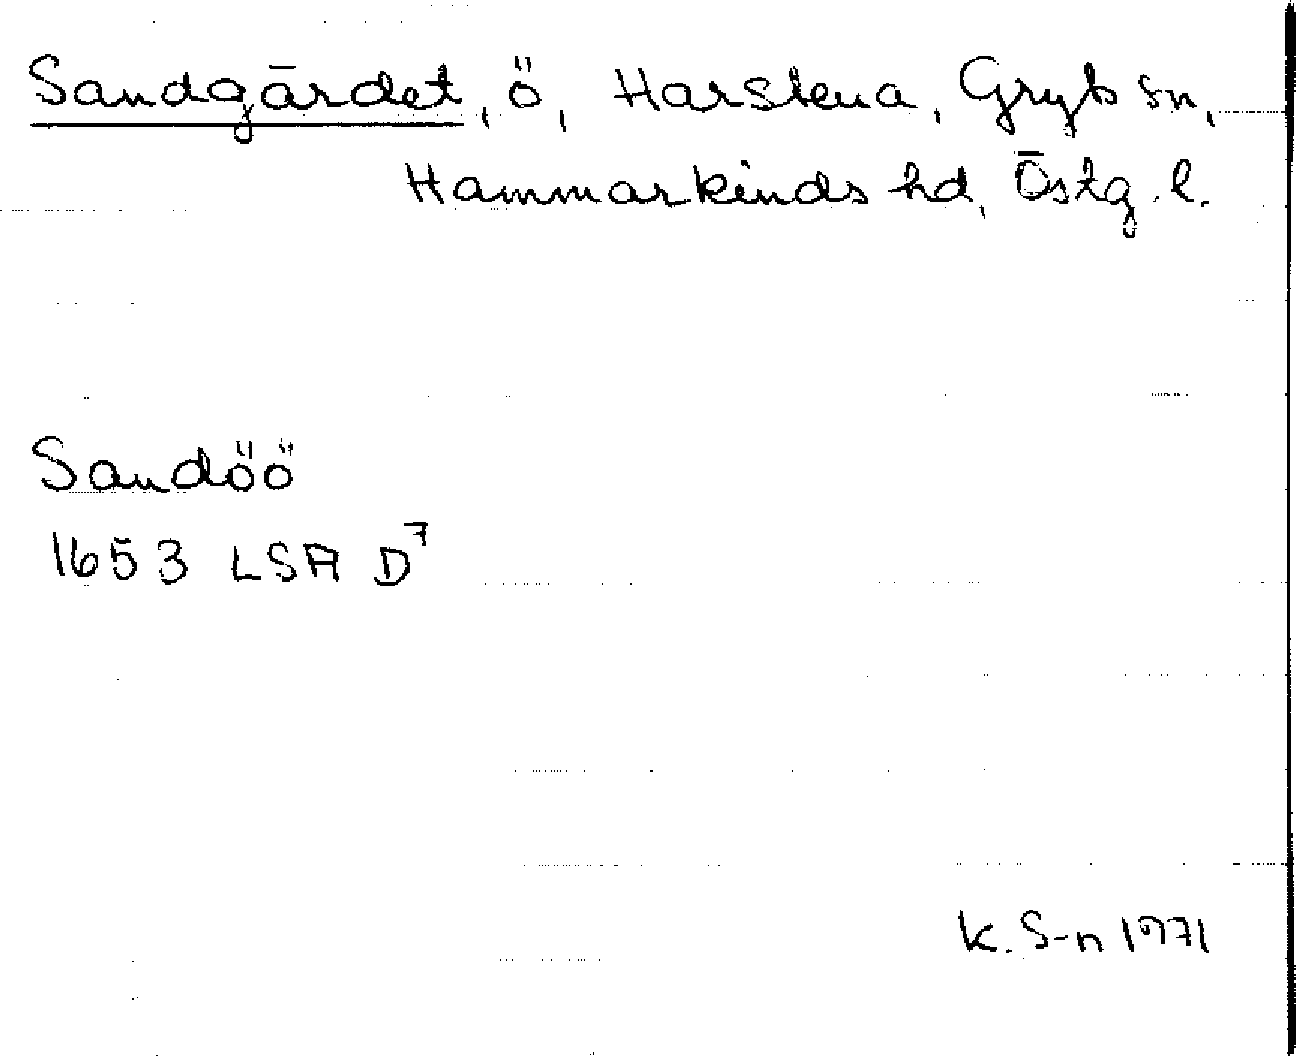 Sandgärdet, ö, Harstena, Gryts sn,
Hammarkinds hd, Östg. l.
Sandöö
1653 LSA D⁷
K. S-n 1971